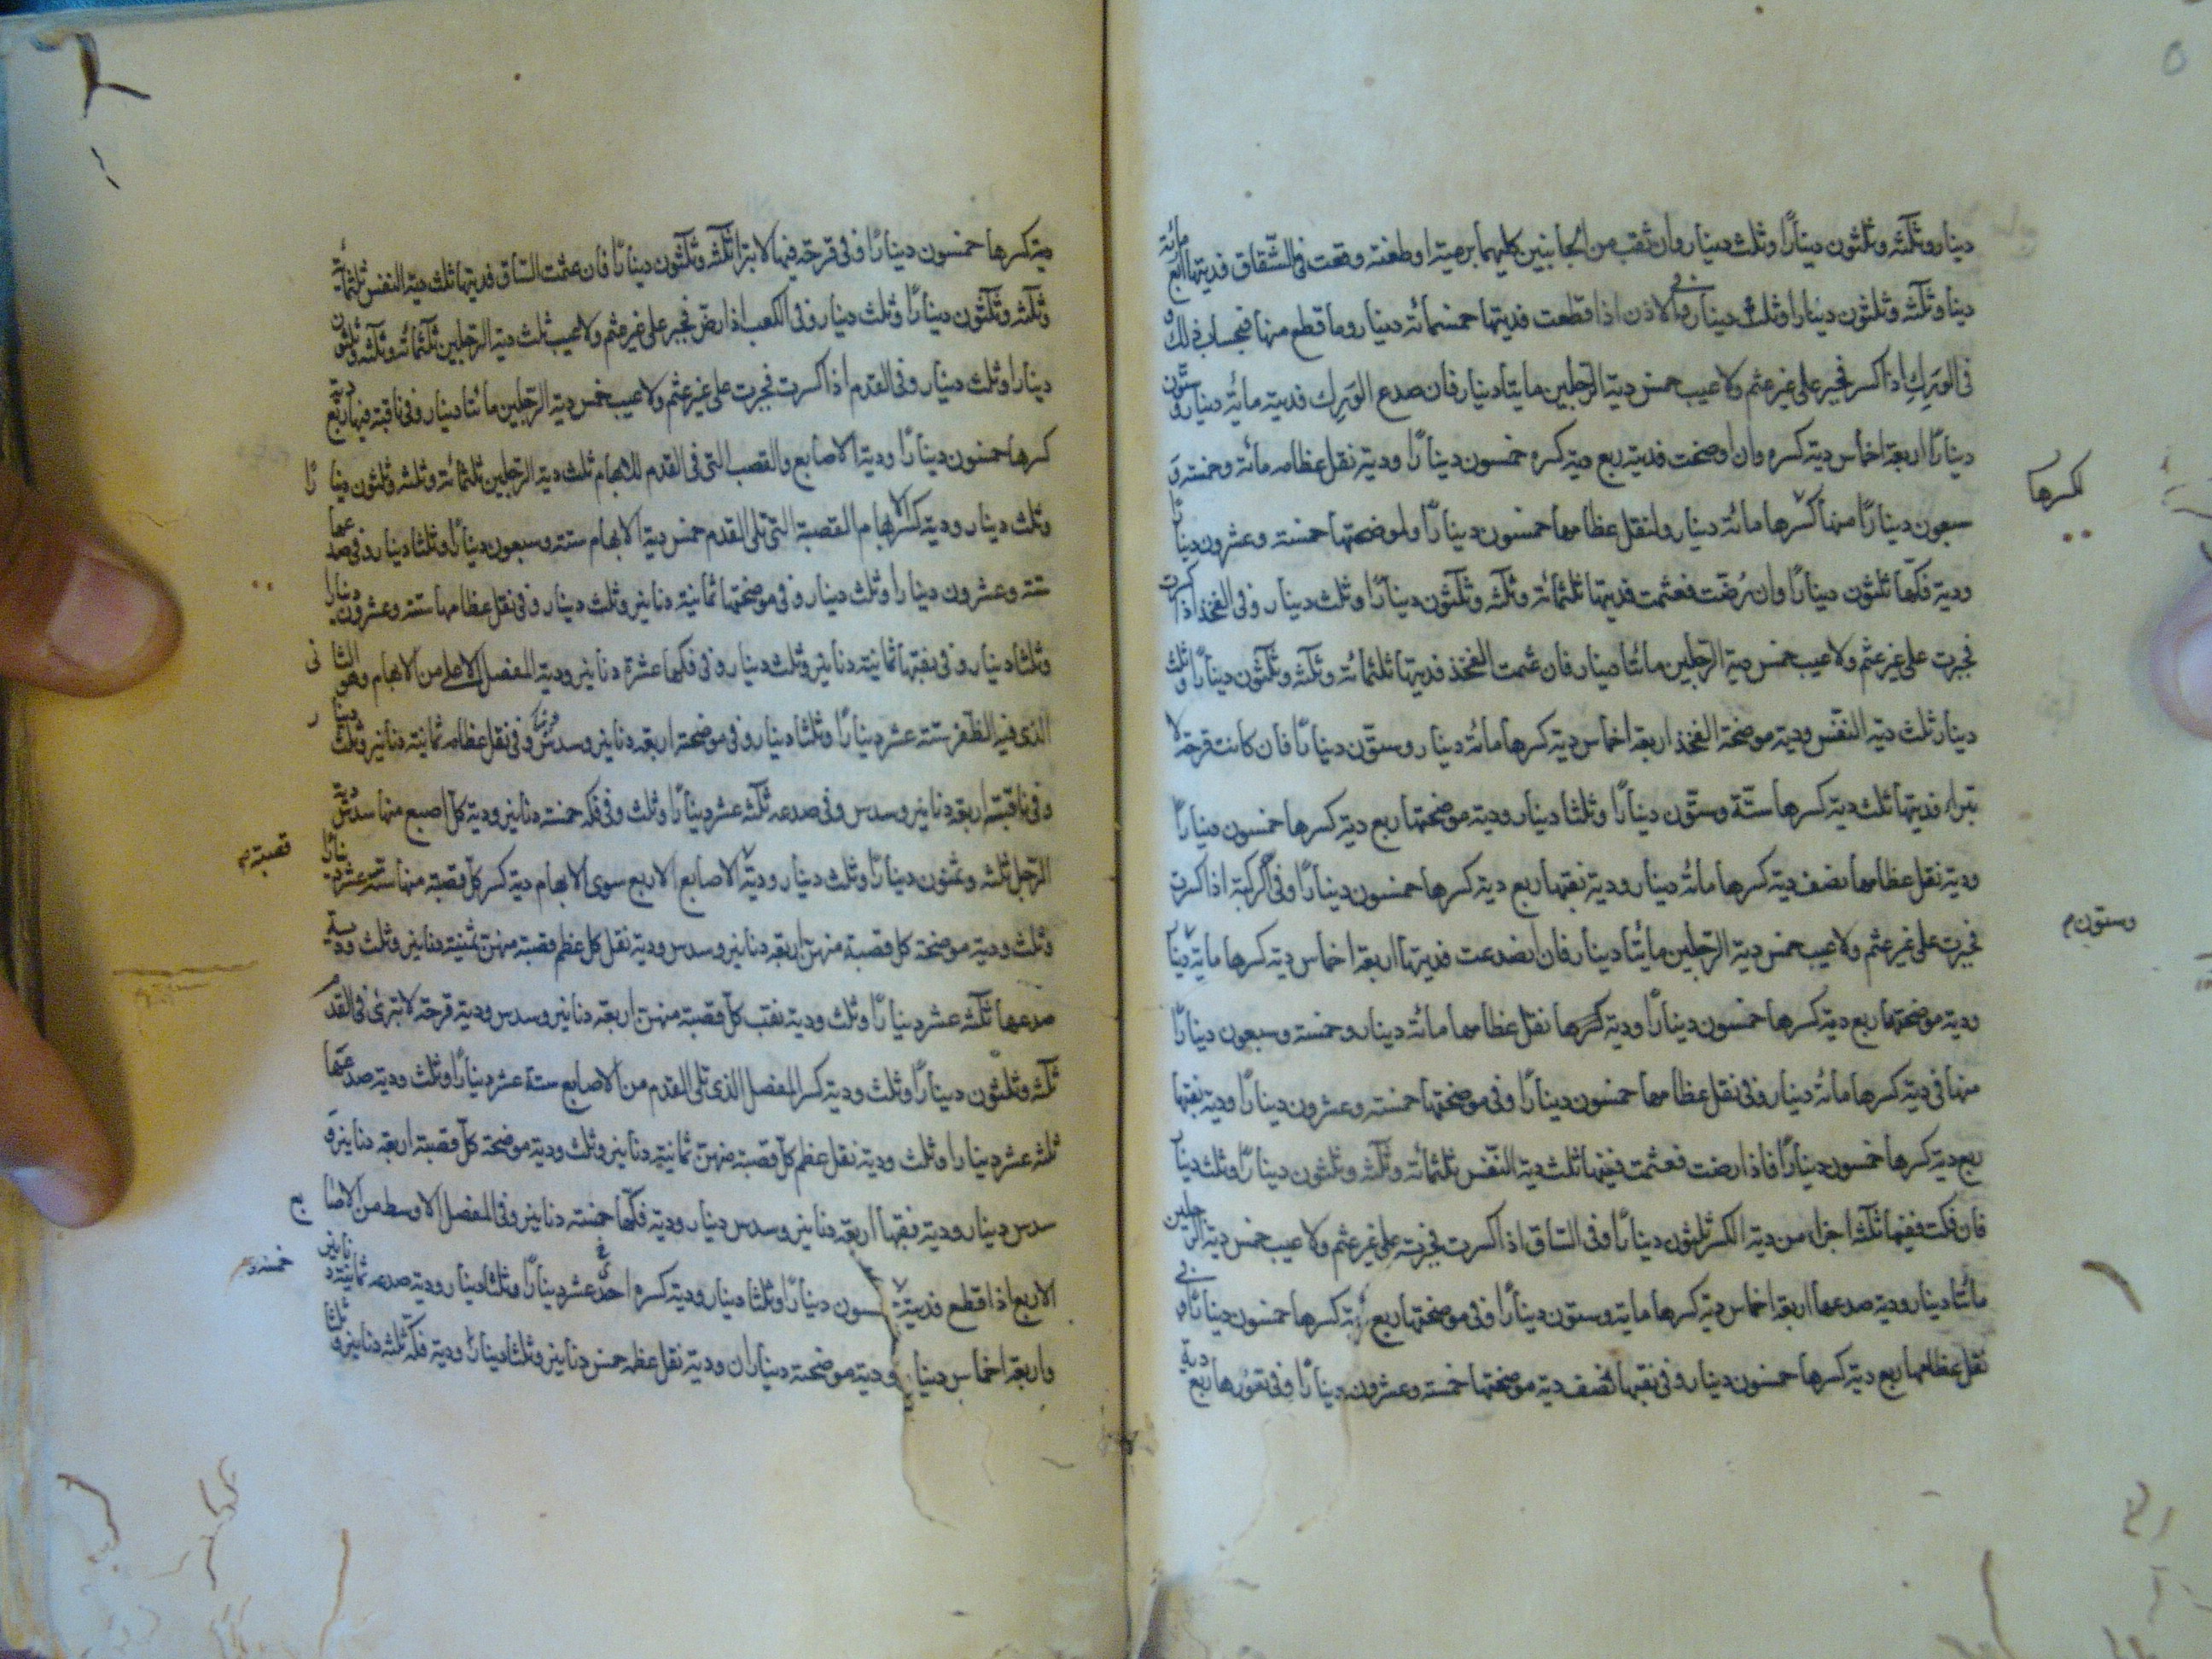 دينار وثلثه وثلثون دينارًا وثلث دينار وان ثقب من الجانبين كليهما برمية او طعنة وقعت فى الشقاق فديتها اربع مائة
دينار وثلثه وثلثون دينارا وثلث دينار وفى الاذن اذا قطعت فديتها خمسمائة دينار وما قطع منها فبحساب ذلك و
فى الورك اذا كسر فجبر على غير عثم ولا عيب خمس دية الرجلين مايتا دينار فان صدع الورك فديته مائة دينار وستون
دينارًا اربعة اخماس دية كسره وان اوضحت فديته ربع دية كسره خمسون دينارًا ودية نقل عظامه مائة وخمسة و
سبعون دينارًا منها كسرها مائة دينار ولنقل عظامها خمسون دينارًا ولموضحتها خمسة وعشرون دينارًا
لكسرها
ودية فكها ثلثون دينارًا وان رضت فعثمت فديتها ثلثمائة وثلثه وثلثون دينارًا وثلث دينار وفى الفخذ اذا كسرت
فجبرت على غير عثم ولا عيب خمس دية الرجلين مائتا دينار فان عثمت الفخذ فديتها ثلثمائة وثلثه وثلثون دينارًا وثلث
دينار ثلث دية النفس ودية موضحة الفخذ اربعة اخماس دية كسرها مائة دينار وستون دينارًا فان كانت قرحة لا
تبراء فديتها ثلث دية كسرها ستة وستون دينارًا وثلثا دينار ودية موضحتها ربع دية كسرها خمسون دينارًا
ودية نقل عظامها نصف دية كسرها مائة دينار ودية نقبها ربع دية كسرها خمسون دينارًا وفى الركبة اذا كسرت
فجبرت على غير عثم ولا عيب خمس دية الرجلين مائتا دينار فان انصدعت فديتها اربعة اخماس دية كسرها ماية دينار
وستون م
ودية موضحتها ربع دية كسرها خمسون دينارًا ودية نقل عظامها مائة دينار وخمسة وسبعون دينارًا
منها فى دية كسرها مائة دينار وفى نقل عظامها خمسون دينارًا وفى موضحتها خمسة وعشرون دينارًا ودية نقبها
ربع دية كسرها خمسون دينارًا فاذا رضت فعثمت ففيها ثلث دية النفس ثلثمائة وثلثه وثلثون دينارًا وثلث دينار
فان فكت ففيها ثلثه اجزاء من دية الكسر ثلثون دينارًا وفى الساق اذا كسرت فجبرت على غير عثم ولا عيب خمس دية الرجلين
مائتا دينار ودية صدعها اربعة اخماس دية كسرها ماية وستون دينارًا وفى موضحتها ربع دية كسرها خمسون دينارًا وفى
نقل عظامها ربع دية كسرها خمسون دينار وفى نقبها نصف دية موضحتها خمسة وعشرون دينارًا وفى نفوذها ربع دية
دية كسرها خمسون دينارًا وفى قرحة فيها لا تبرا ثلثه وثلثون دينارًا فان عثمت الساق فديتها ثلث دية النفس ثلثمائة
وثلثه وثلثون دينارًا وثلث دينار وفى الكعب اذا رض فجبر على غير عثم ولا عيب ثلث دية الرجلين ثلثمائة وثلثه وثلثون
دينارا وثلث دينار وفى القدم اذا كسرت فجبرت على غير عثم ولا عيب خمس دية الرجلين مائتا دينار وفى ناقبة فيها ربع دية
كسرها خمسون دينارًا ودية الاصابع والقصب التى فى القدم للابهام ثلث دية الرجلين ثلثمائة وثلثه وثلثون دينارًا
وثلث دينار ودية كسر الابهام القصبة التى تلى القدم خمس دية الابهام ستة وسبعون دينارًا وثلثا دينار وفى صدعها
ستة وعشرون دينارا وثلث دينار وفى موضحتها ثمانية دنانير وثلث دينار وفى نقل عظامها ستة وعشرون دينارا
وثلثا دينار وفى نقبها ثمانية دنانير وثلث دينار وفى فكها عشرة دنانير ودية المفصل الاعلى من الابهام وهو الثانى
الذى فيه الظفر ستة عشر دينارًا وثلثا دينار وفى موضحته اربعة دنانير وسدس وفى نقل عظامه ثمانية دنانير وثلث دينار
وفى ناقبته اربعة دنانير وسدس وفى صدعه ثلثه عشر دينارًا وثلث وفى فكه خمسة دنانير ودية كل اصبع منها سدس دية
الرجل ثلثه وثمنون دينارًا وثلث دينار ودية الاصابع الاربع سوى الابهام دية كسر كل قصبة منها ستة عشر دينارًا
قصبة م
وثلث ودية موضحة كل قصبة منهن اربعة دنانير وسدس ودية نقل كل عظم قصبة منهن ثمنية دنانير وثلث ودية
صدعها ثلثه عشر دينارًا وثلث ودية نقب كل قصبة منهن اربعة دنانير وسدس ودية قرحة لا تبرئ فى القدم
ثلثه وثلثون دينارًا وثلث ودية كسر المفصل الذى تلى القدم من الاصابع ستة عشر دينارًا وثلث ودية صدعها
ثلثه عشر دينارا وثلث ودية نقل عظم كل قصبة منهن ثمانية دنانير وثلث ودية موضحة كل قصبة اربعة دنانير و
سدس دينار ودية نقبها اربعة دنانير وسدس دينار ودية فكها خمسة دنانير وفى المفصل الاوسط من الاصابع
الاربع اذا قطع فديته خمسون دينارًا وثلثا دينار ودية كسره احد عشر دينارًا وثلثا دينار ودية صدعه ثمانية دنانير
خمسة و
واربعة اخماس دينار ودية موضحته ديناران ودية نقل عظمه خمس دنانير وثلثا دينارًا ودية فكه ثلثه دنانير وثلثا